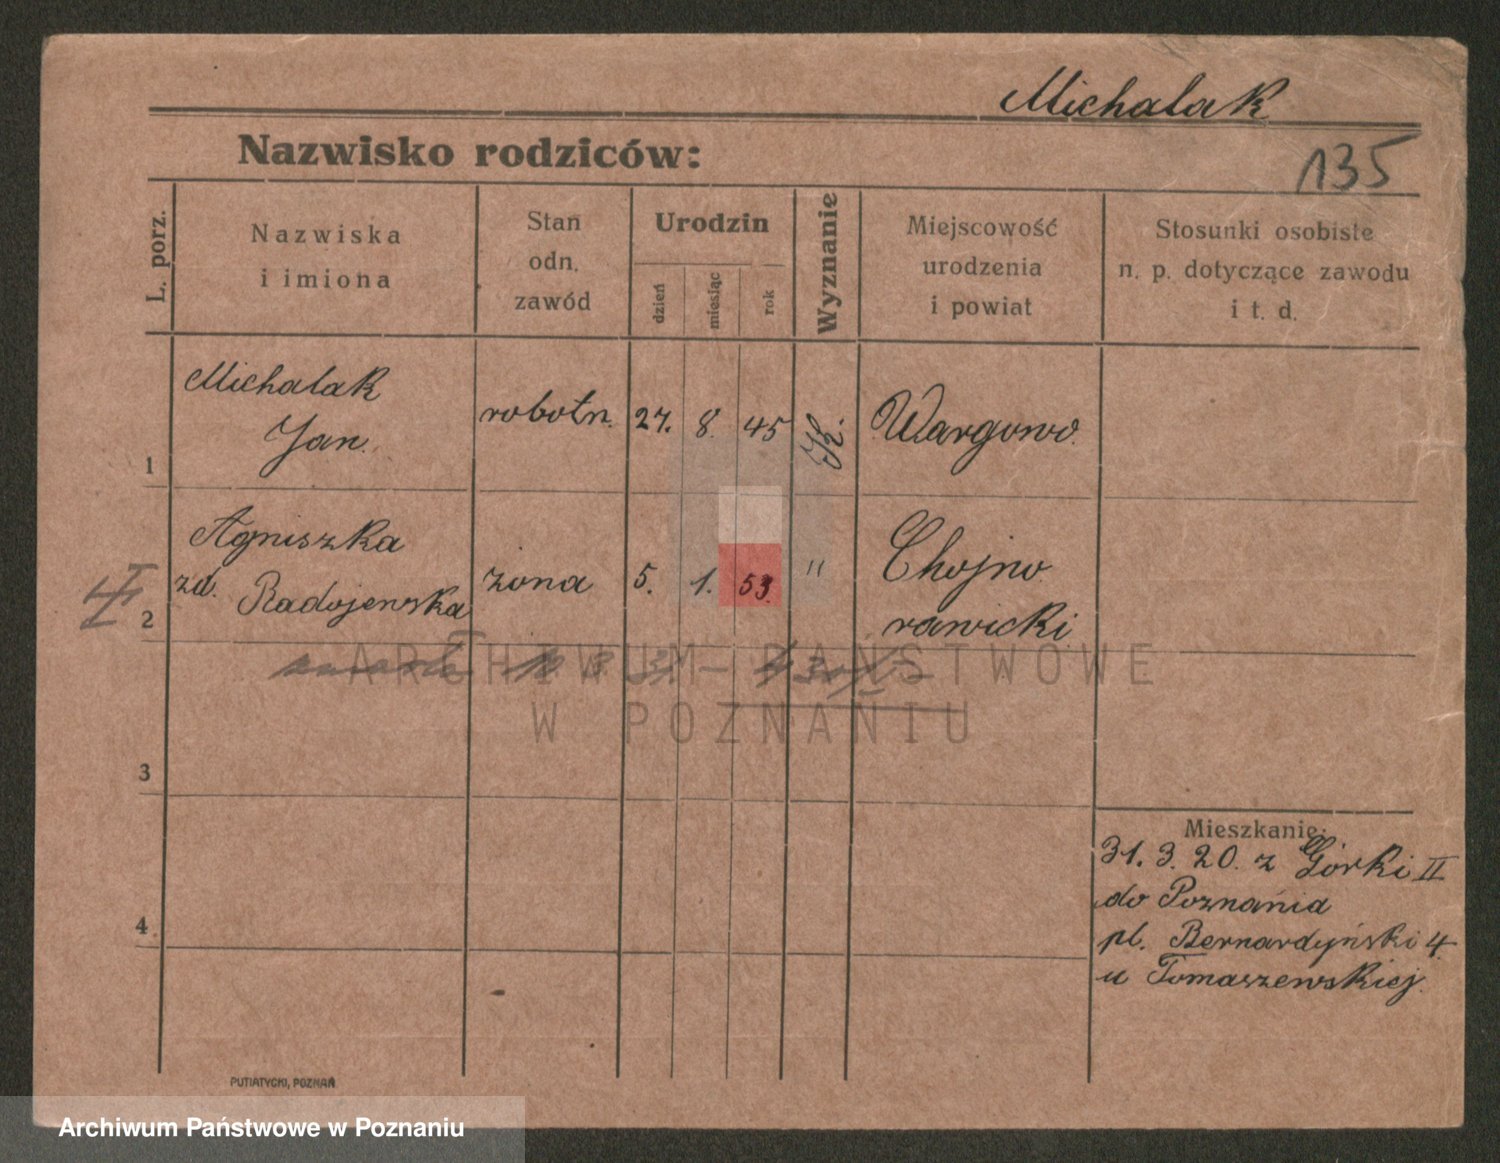 Michalak
Nazwisko rodziców:
135
L. porz.
Nazwiska
i imiona
Stan
odn.
zawód
Urodzin
dzień
miesiąc
rok
Wyznanie
Miejscowość
urodzenia
i powiat
Stosunki osobiste
n. p. dotyczące zawodu
i t. d.
1
Michalak
Jan.
robotn.
27.
8.
45
K.
Wargowo
2
Agniszka
zd. Radojewska
żona
5.
1.
53.
"
Chojno
rawicki
ARCHIWUM PAŃSTWOWE
W POZNANIU
3
4
Mieszkanie:
31. 3. 20. z Górki II
do Poznania
pl. Bernardyński 4
u Tomaszewskiej.
PUTIATYCKI, POZNAŃ
Archiwum Państwowe w Poznaniu